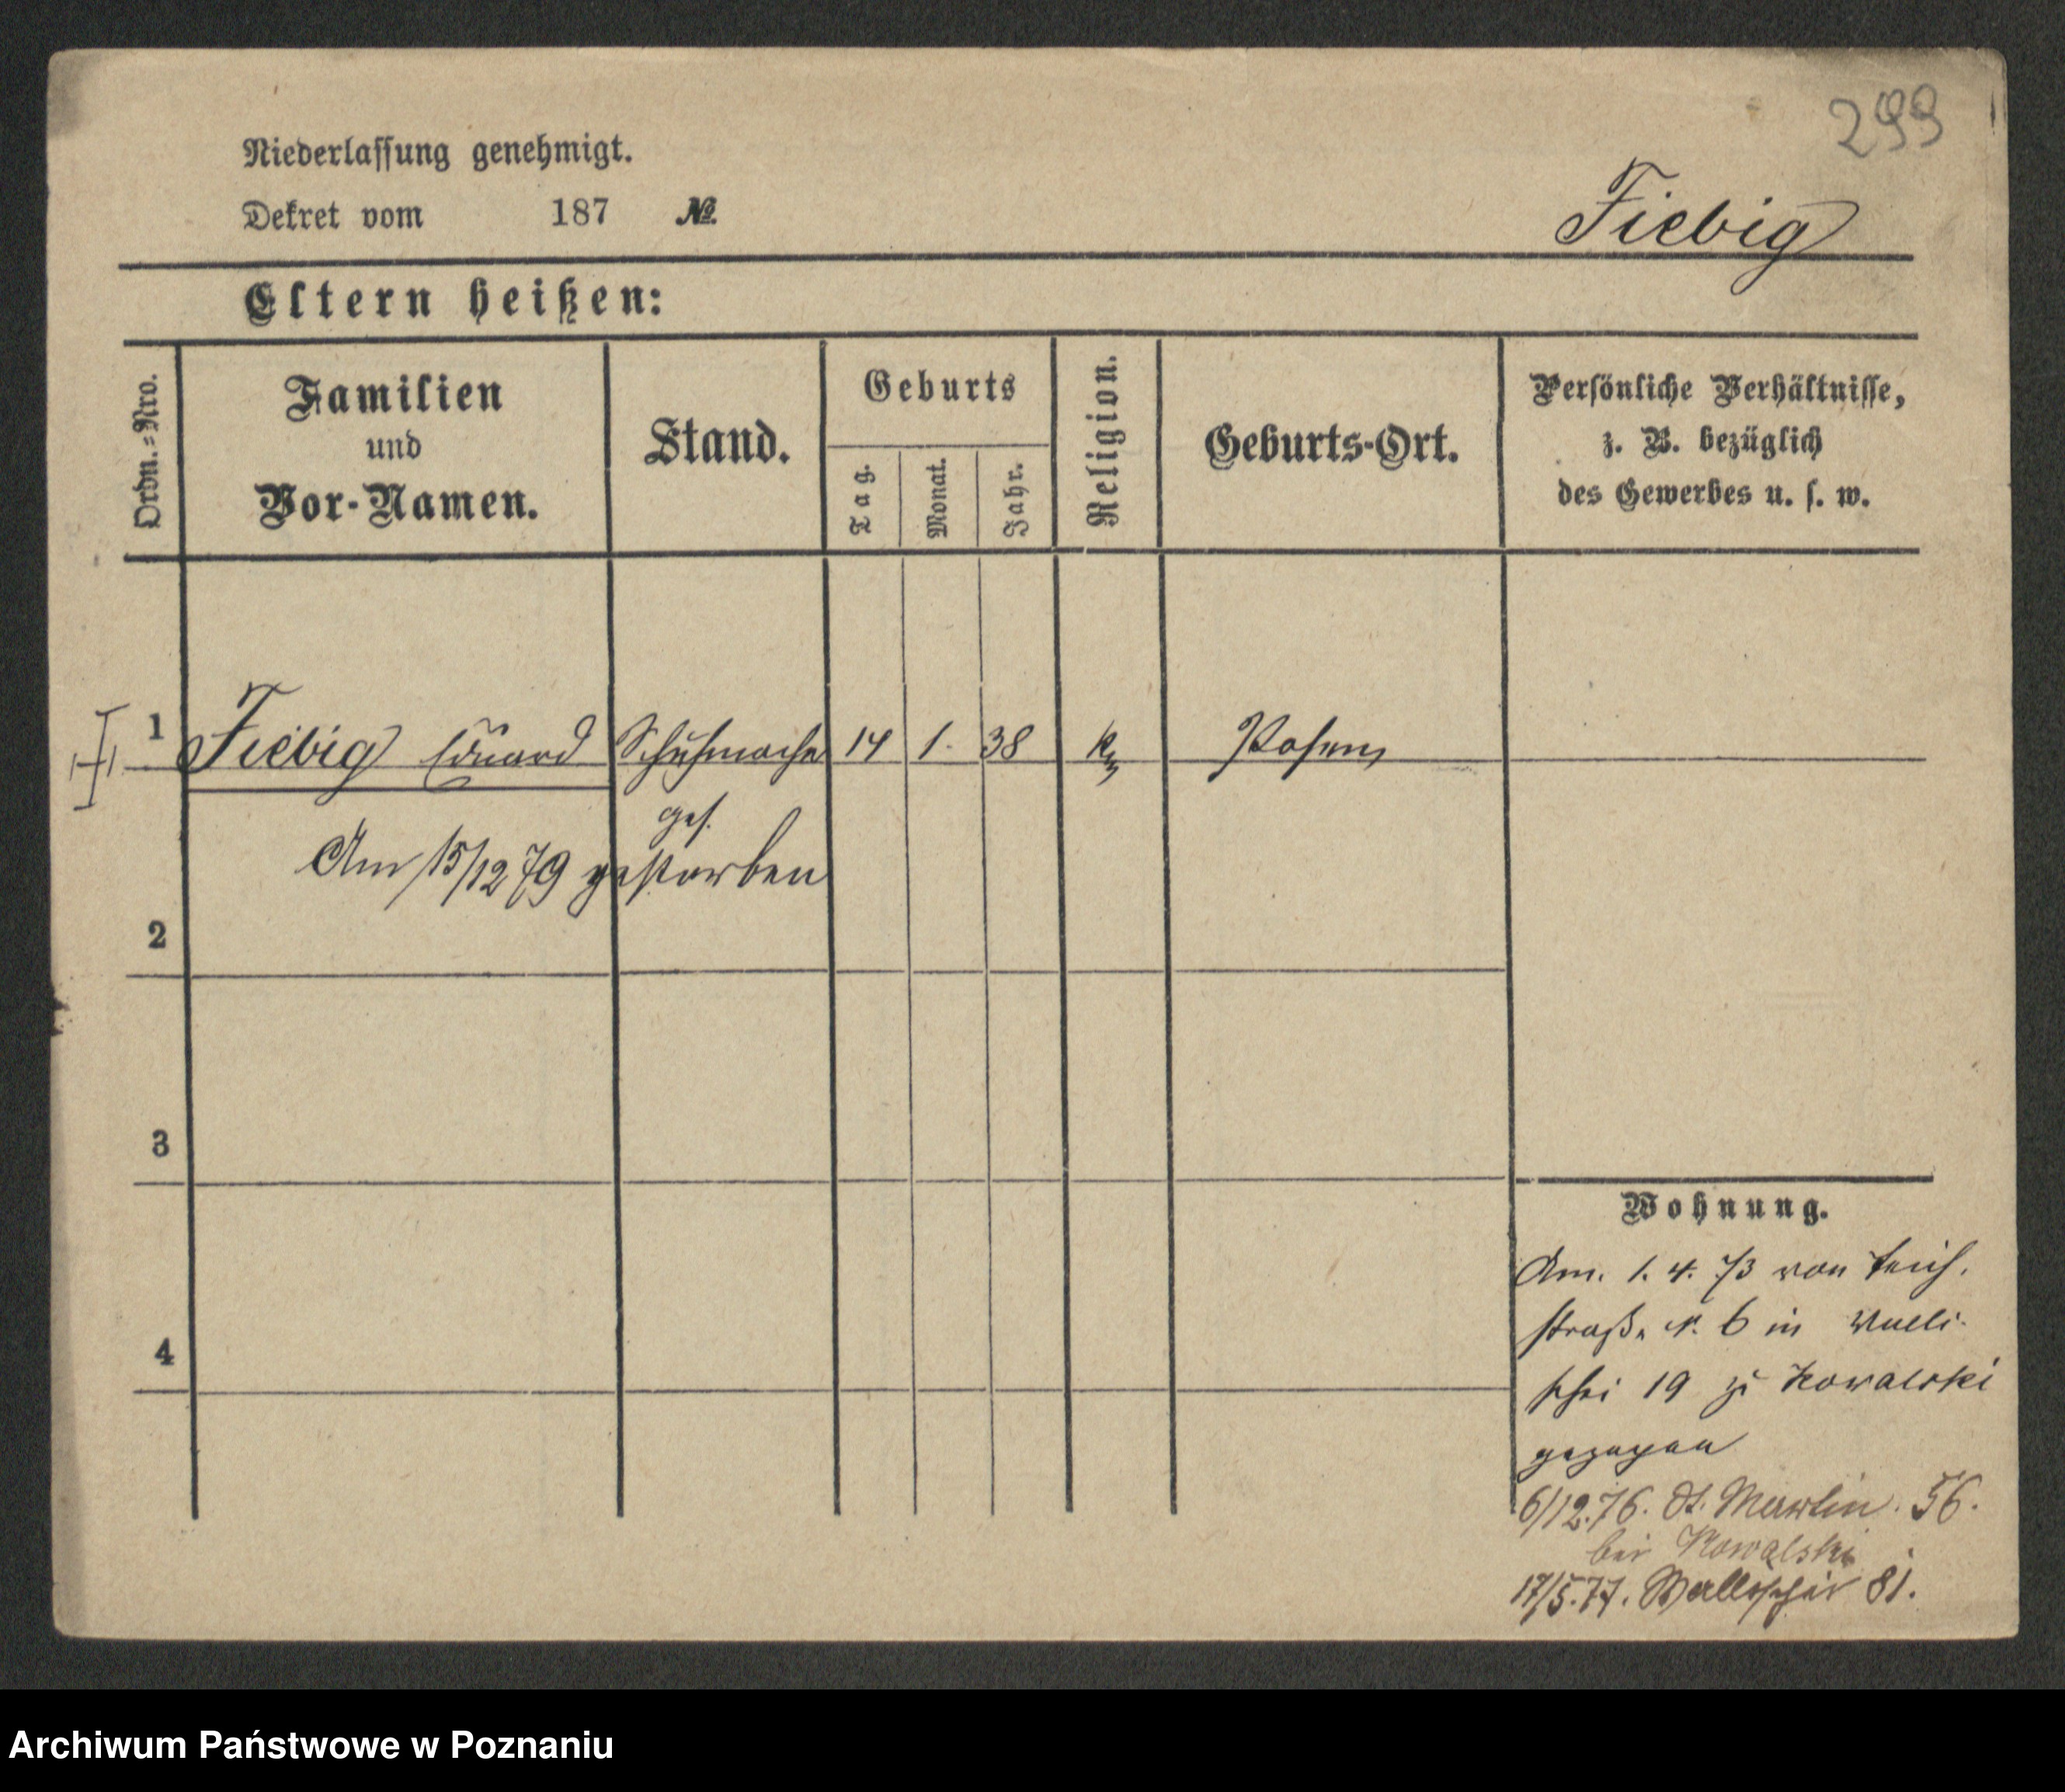 299
Niederlassung genehmigt.
Dekret vom 187 №
Fiebig
Eltern heißen:
Ordn.=Nro.
Familien
und
Vor-Namen.
Stand.
Geburts
Tag.
Monat.
Jahr.
Religion.
Geburts-Ort.
Persönliche Verhältnisse,
z. B. bezüglich
des Gewerbes u. s. w.
1 Fiebig Eduard Schuhmacher 14 1. 38 Posen
ges.
Am 15/12 79 gestorben
2
3
4
Wohnung.
Am. 1. 4. 73 von Teich.
straße N. 6 in Walli-
schei 19 zu Kowalski
gezogen
6/12.76. St. Martin. 56.
bei Kowalski
17/5.77. Wallischei 81.
Archiwum Państwowe w Poznaniu